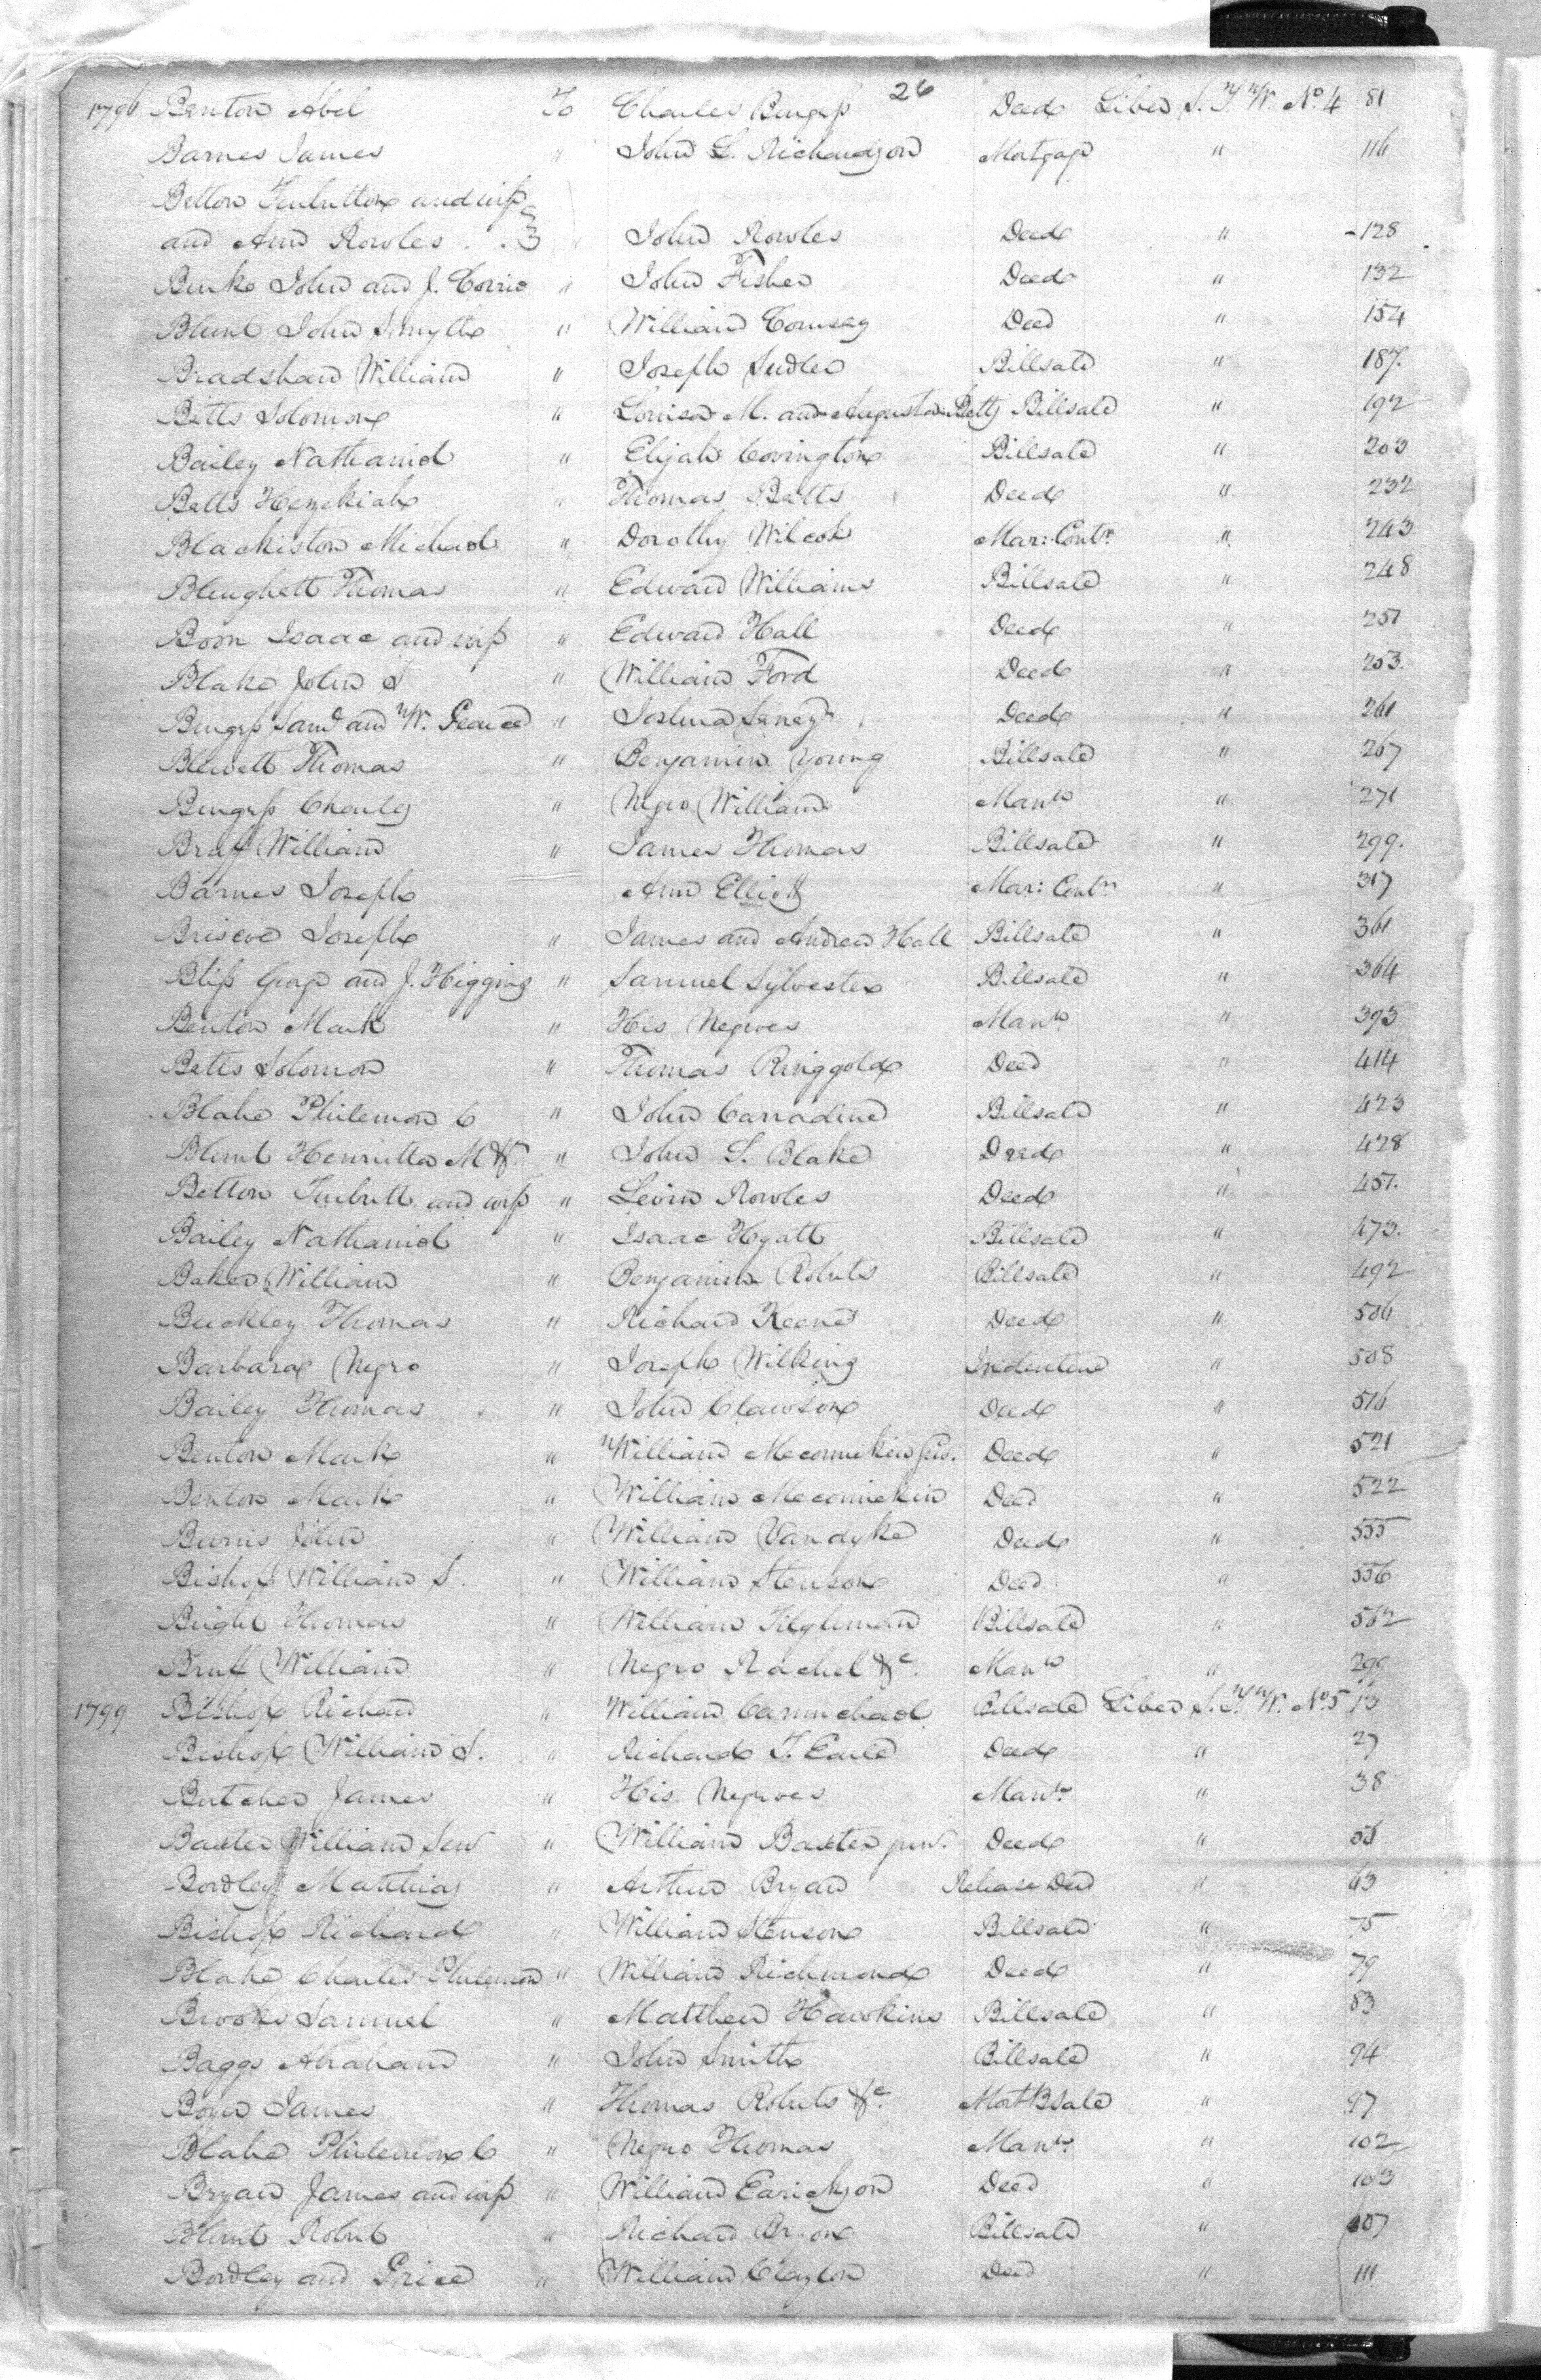 26
1796 Benton Abel To Charles Burgess Deed Liber S. T. W. No. 4 81
Barnes James " John L. Richardson Mortgage " 116
Betton Turbutton and wife
and Ann Rowles " John Rowles Deed " 128
Burke John and J. Corrie " John Fisher Deed " 132
Blunt John Smyth " William Comegy Deed " 154
Bradshaw William " Joseph Sudler Billsale " 187.
Betts Solomon " Louisa M. and Augusta Betts Billsale " 192
Bailey Nathaniel " Elijah Covington Billsale " 203
Betts Hezekiah " Thomas Betts Deed " 232
Blackiston Michael " Dorothy Wilcok Mar: Contr. " 243
Thomas " Edward Williams Billsale " 248
Boon Isaac and wife " Edward Hall Deed " 251
Blake John S " William Ford Deed " 253.
Burgess Saml and W. Pearce " Joshua Seney Deed " 261
Blewett Thomas " Benjamin Young Billsale " 267
Burgess Charles " Negro William Mann " 271
Bruff William " James Thomas Billsale " 299.
Barnes Joseph Ann Elliott Mar: Contr. " 317
Briscoe Joseph " James and Andrew Hall Billsale " 361
Bliss George and J. Higgins " Samuel Sylvester Billsale " 364
Benton Mark " His Negroes Mann. " 393
Betts Solomon " Thomas Ringgold Deed " 414
Blake Philemon C " John Carradine Billsale " 423
Blunt Henrietta M &c. " John S. Blake Deed " 428
Betton Turbutt and wife " Levin Rowles Deed " 451.
Bailey Nathaniel " Isaac Hyatt Billsale " 473.
Baker William " Benjamin Roberts Billsale " 492
Buckley Thomas " Richard Keene Deed " 506
Barbara Negro " Joseph Wilkins Indenture " 508
Bailey Thomas " John Clawson Deed " 516
Benton Mark " William Meconnekin Jun. Deed " 521
Benton Mark " William Meconnekin Deed " 522
John " William Vandyke Deed " 555
Bishop William S. " William Stenson Deed " 556
Bright Thomas " William Tilghman Billsale " 562
Bruff William " Negro Rachel &c. Mann " 299
1799 Bishop Richard " William Carmichael Billsale Liber S. T. W. No. 5 13
Bishop William S. " Richard T. Earle Deed " 27
Butcher James " His Negroes Mann. " 38
Baxter William Sen " William Baxter jun. Deed "
Bordley Matthias " Arthur Bryan Release Deed " 63
Bishop Richard " William Stenson Billsale " 75
Blake Charles Philemon " William Richmond Deed " 79
Brooks Samuel " Matthew Hawkins Billsale " 83
Baggs Abraham " John Smith Billsale " 94
Boyer James " Thomas Roberts &c. Mort Bsale " 97
Blake Philemon C " Negro Thomas Mann. " 102
Bryan James and wife " William Earickson Deed " 103
Blunt Robert " Richard Billsale " 107
Bordley and Price " William Clayton Deed " 111